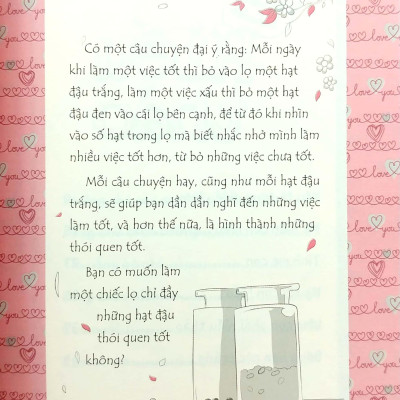 Có một câu chuyện đại ý rằng: Mỗi ngày
khi làm một việc tốt thì bỏ vào lọ một hạt
đậu trắng, làm một việc xấu thì bỏ một hạt
đậu đen vào cái lọ bên cạnh, để từ đó khi nhìn
vào số hạt trong lọ mà biết nhắc nhở mình làm
nhiều việc tốt hơn, từ bỏ những việc chưa tốt.
Mỗi câu chuyện hay, cũng như mỗi hạt đậu
trắng, sẽ giúp bạn dần dần nghĩ đến những việc
làm tốt, và hơn thế nữa, là hình thành những
thói quen tốt.
Bạn có muốn làm
một chiếc lọ chỉ đầy
những hạt đậu
thói quen tốt
không?
love
you